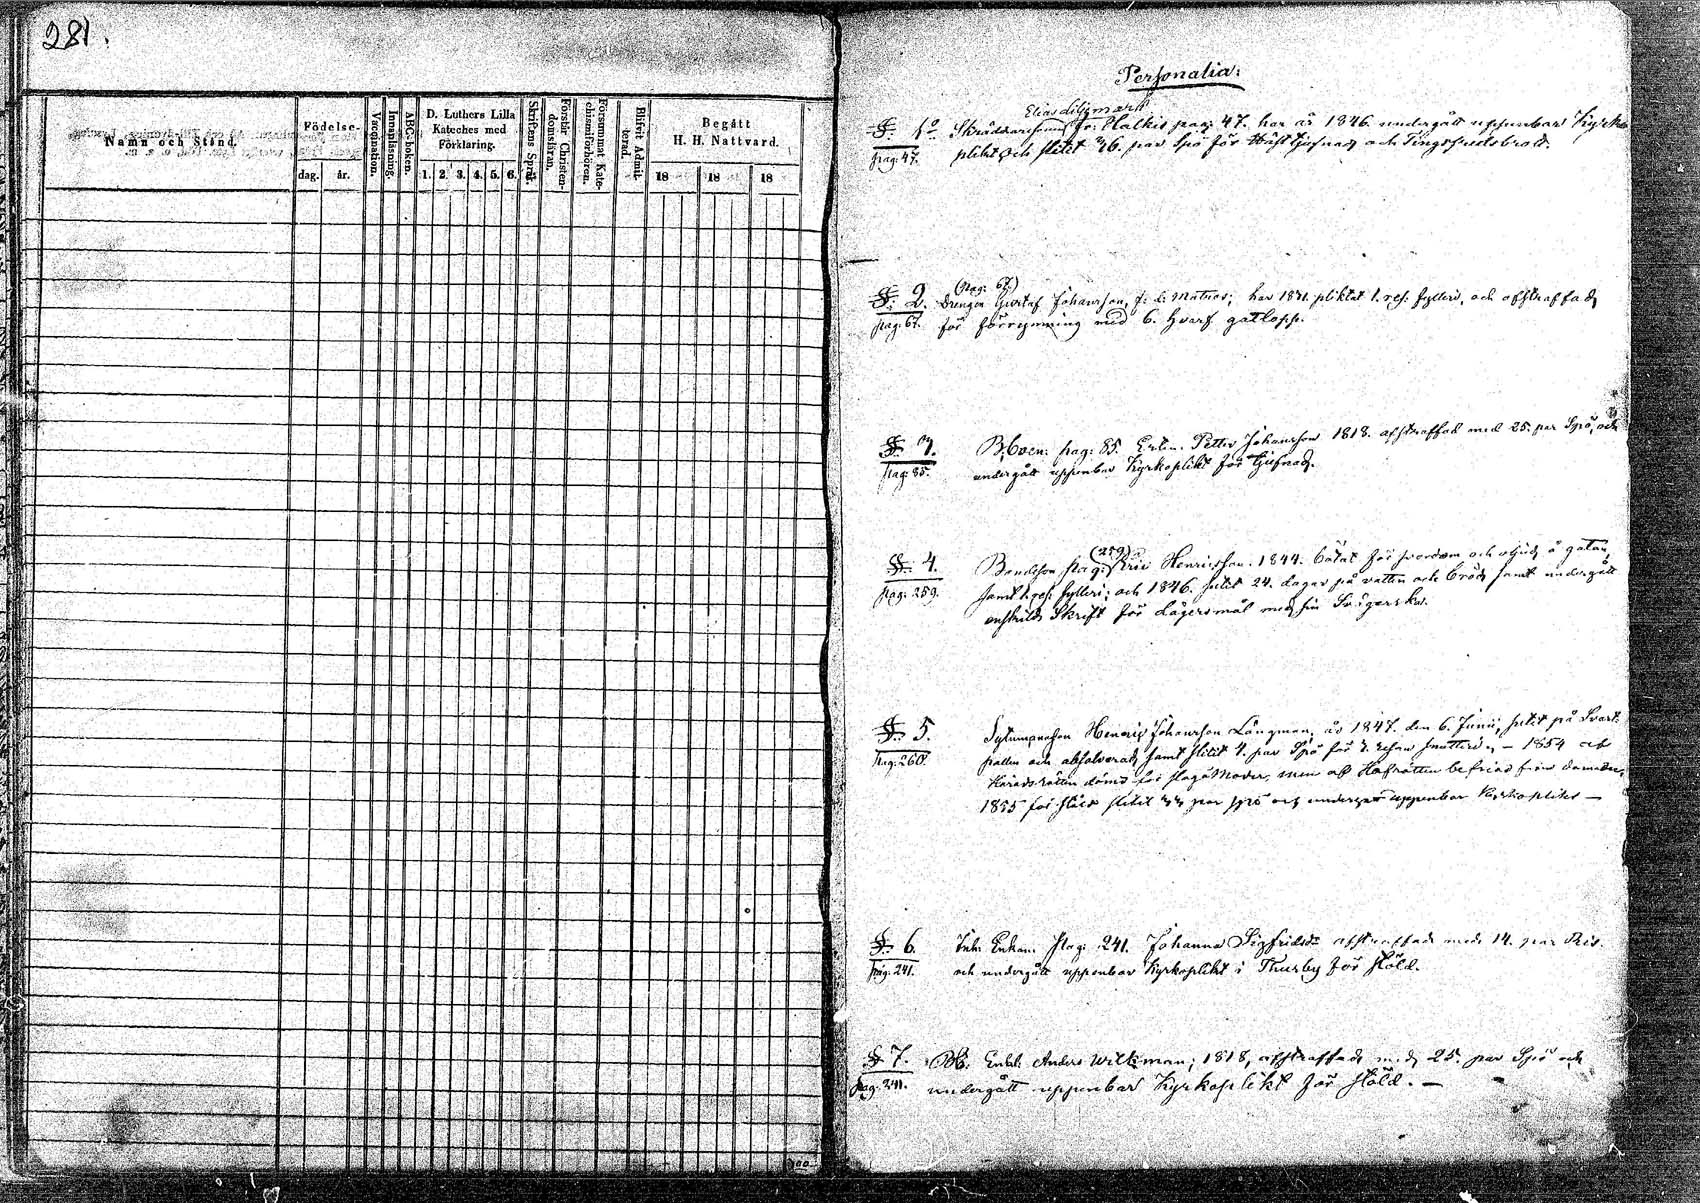 281.
Namn och Stånd.
Födelse-
dag. år.
Vaccination.
Innanläsning.
ABC-boken.
D. Luthers Lilla
Kateches med
Förklaring.
1. 2. 3. 4. 5. 6.
Skriftens Språk.
Förstår Christen-
domsläran.
Försummat Kate-
chismiförhören.
Blifvit Admit-
terad.
Begått
H. H. Nattvard.
18 18 18
Personalia:
§. 1o Skräddaren pag: 47. har år 1846. undergått uppenbar Kyrko
pag: 47. plikt och slitit 26. par Spö för och Tingsfridsbrott.
(pag: 67.)
§. 2. Drengen Gustaf Johansson, har 1841. pliktat 1. res: fylleri, och afstraffad
pag: 67. för förrymning med 6. hvarf gatlopp.
§. 3. pag: 85. Petter Johansson 1818. afstraffad med 25. par Spö, och
pag: 85. undergått uppenbar Kyrkoplikt för tjufnad.
(259)
§. 4. Bondeson pag: Eric Henricsson. 1844. bötat för svordom och oljud å gatan,
pag: 259. samt 1. res: fylleri; och 1846. sutit 24. dagar på vatten och bröd samt undergått
enskild Skrift för Lägersmål med sin Svägerska.
§. 5. Henric Johansson Långman, år 1847. den 6. Junii, sutit på Svart-
pag: 260. pallen och absolverad, samt slitit 4. par Spö för snatteri. – 1854 af
Häradsrätten dömd för slagit Moder, men af Hofrätten befriad från domen.
1855 för slitit par spö och undergått uppenbar Kyrkoplikt —
§. 6. Enkan pag: 241. Johanna Sigfridsdr afstraffad med 14. par Ris.
pag: 241. och undergått uppenbar Kyrkoplikt i Thurby för stöld.
§ 7. Anders Wilkman; 1818, afstraffad med 25. par Spö och
pag: 241. undergått uppenbar Kyrkoplikt för stöld. —